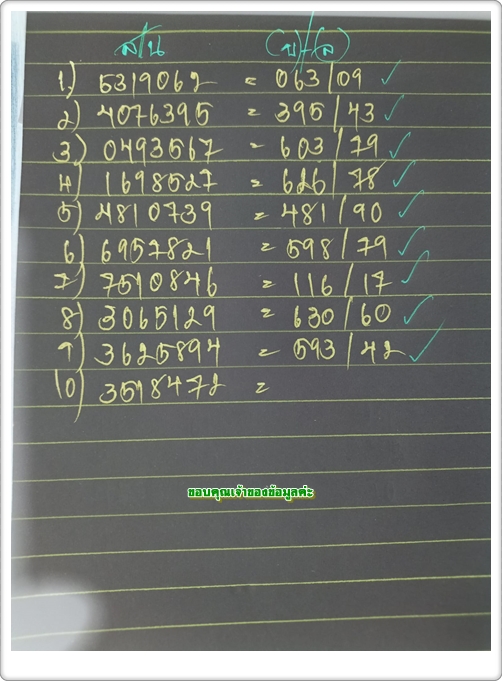 ส/น (บ)-(ล)
1) 5319062 = 063/09 ✓
2) 4076395 = 395/43 ✓
3) 0493567 = 603/79 ✓
4) 1698527 = 626/78 ✓
5) 4810739 = 481/90 ✓
6) 6957821 = 598/79 ✓
7) 7510846 = 116/17 ✓
8) 3065129 = 630/60 ✓
9) 3625894 = 593/42 ✓
10) 3518472 =
ขอบคุณเจ้าของข้อมูลค่ะ